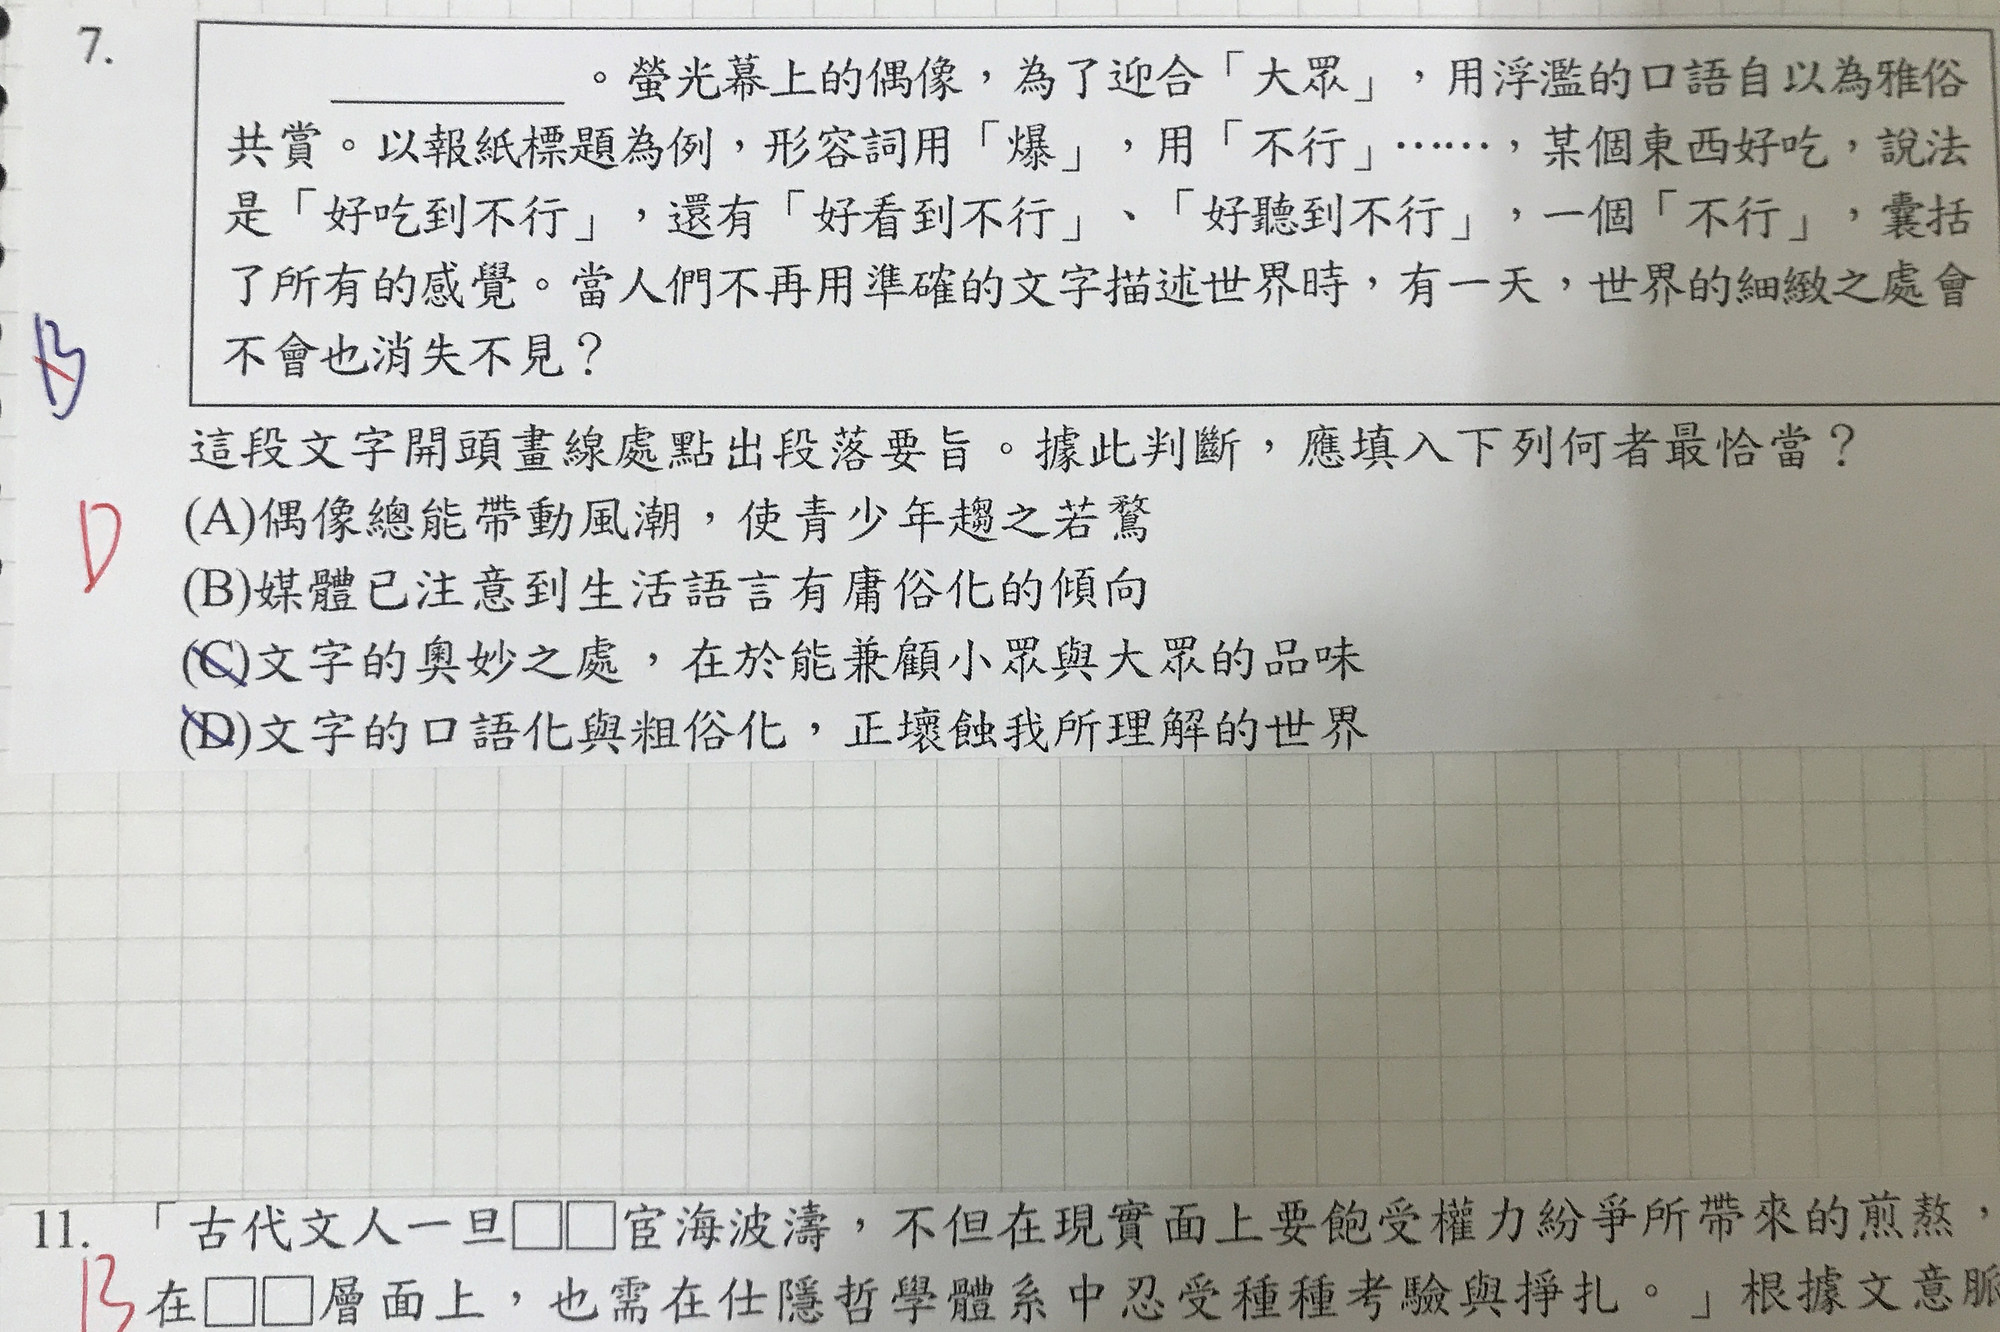 7.
＿＿＿＿＿。螢光幕上的偶像，為了迎合「大眾」，用浮濫的口語自以為雅俗
共賞。以報紙標題為例，形容詞用「爆」，用「不行」……，某個東西好吃，說法
是「好吃到不行」，還有「好看到不行」、「好聽到不行」，一個「不行」，囊括
了所有的感覺。當人們不再用準確的文字描述世界時，有一天，世界的細緻之處會
不會也消失不見？
B
這段文字開頭畫線處點出段落要旨。據此判斷，應填入下列何者最恰當？
D
(A)偶像總能帶動風潮，使青少年趨之若鶩
(B)媒體已注意到生活語言有庸俗化的傾向
(C)文字的奧妙之處，在於能兼顧小眾與大眾的品味
(D)文字的口語化與粗俗化，正壞蝕我所理解的世界
11.「古代文人一旦□□宦海波濤，不但在現實面上要飽受權力紛爭所帶來的煎熬，
B
在□□層面上，也需在仕隱哲學體系中忍受種種考驗與掙扎。」根據文意脈